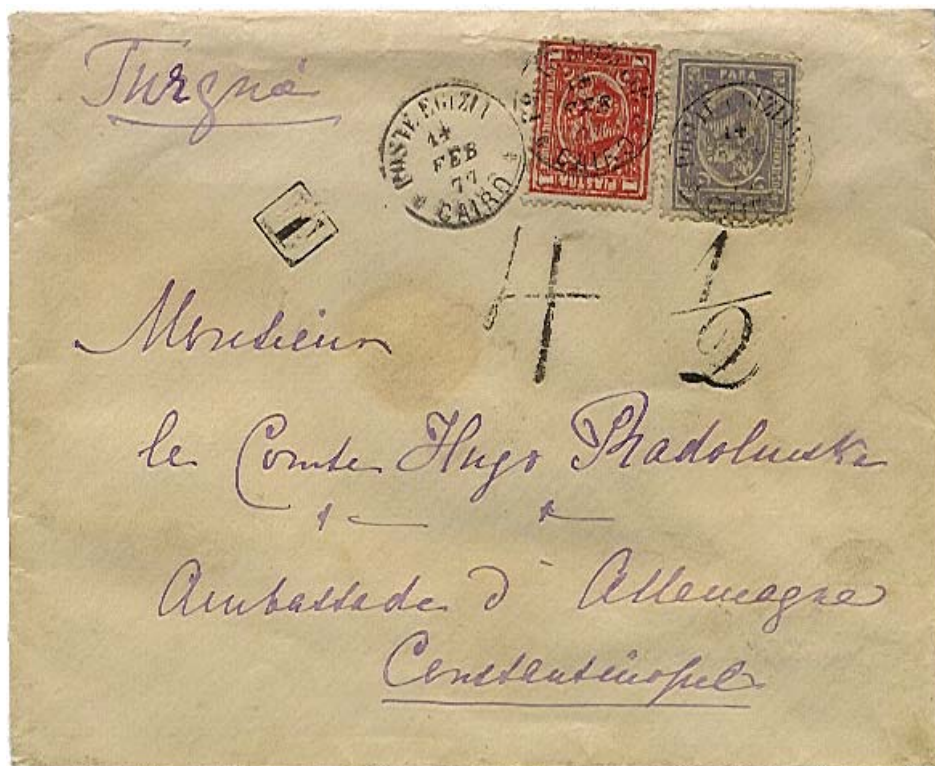 Turquie
POSTE EGIZIANE
14
FEB
77
CAIRO
T
1
PIASTRA
1
PARA
4 1/2
Monsieur
le Comte Hugo Radolinski
Ambassade d'Allemagne
Constantinopel